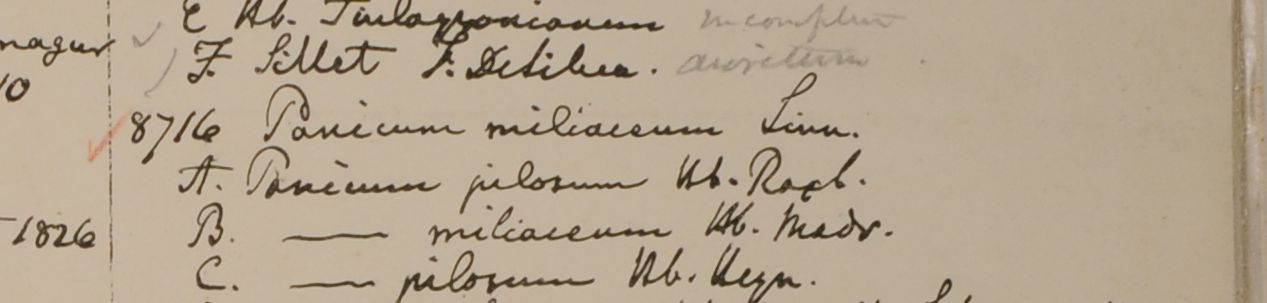 E Hb. Finlaysonianum incomptum
nagur
F. Sillet F. De Silva. auritum
10
8716 Panicum miliaceum Linn.
A. Panicum pilosum Hb. Roxb.
1826 B. —— miliaceum Hb. Madr.
C. —— pilosum Hb. Heyn.